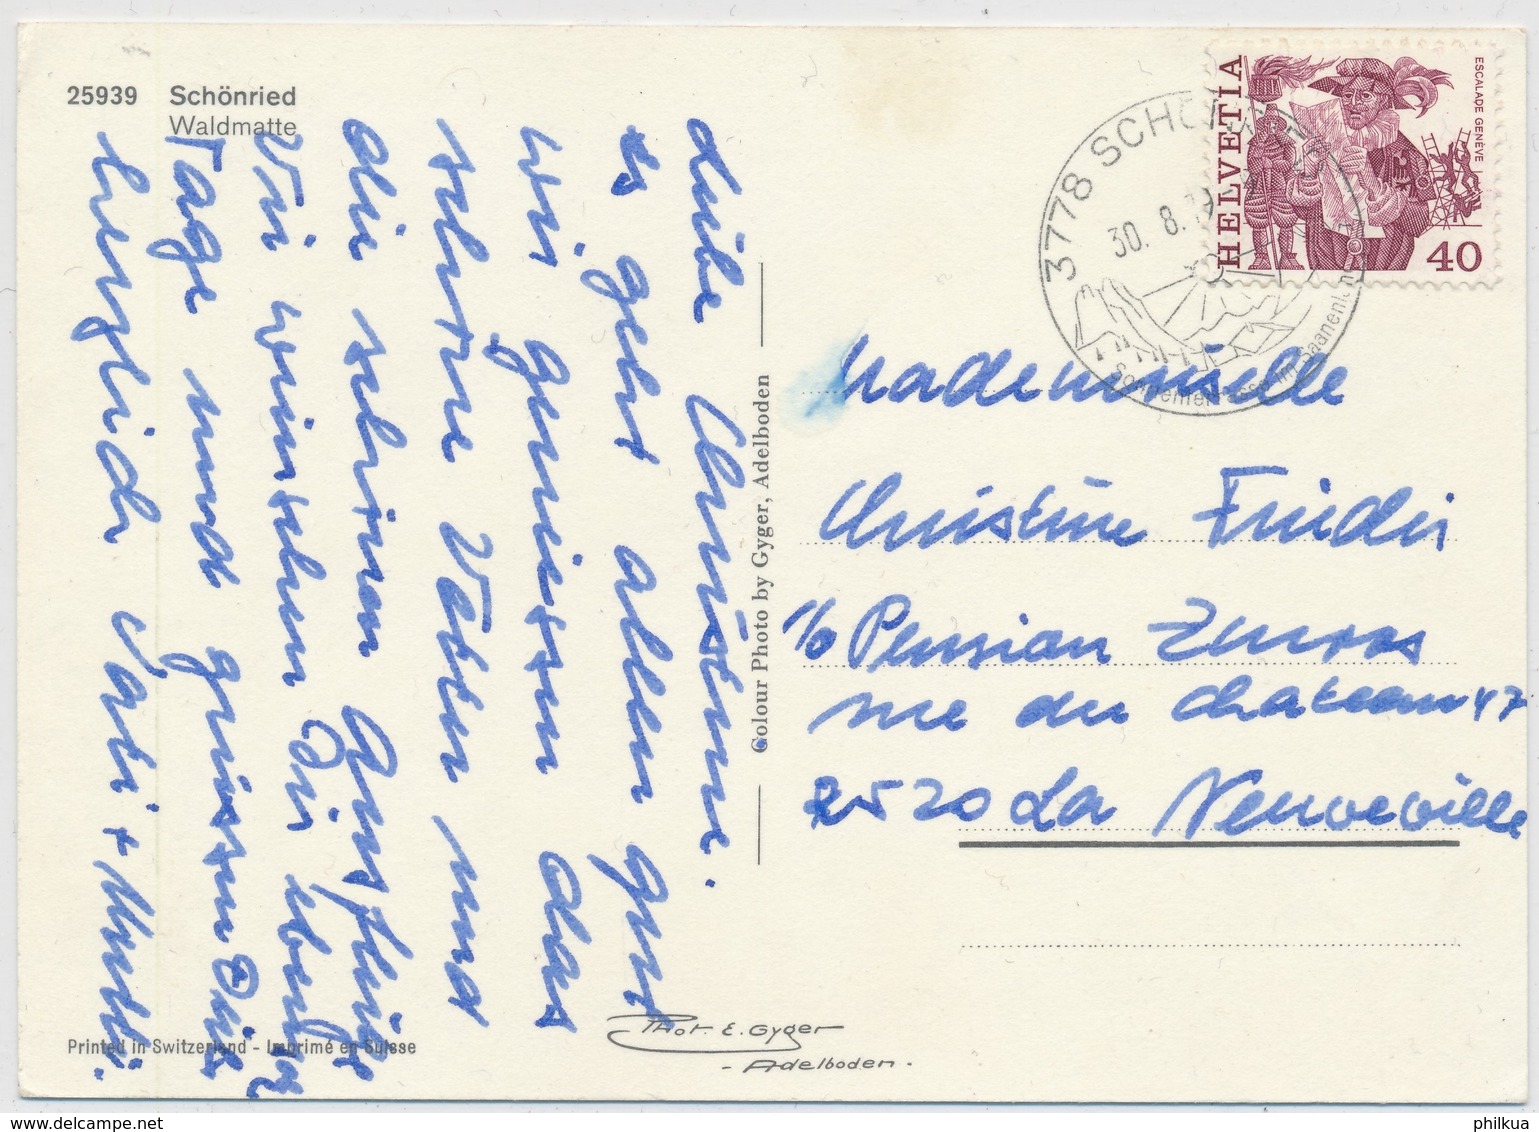 25939 Schönried
Waldmatte
Liebe Christine.
es geht allen gut
wir geniessen das
schöne Wetter und
die schönen Ausflüge
Wir wünschen Dir
Tage und grüssen Dich
herzlich Vati + Mutti.
Colour Photo by Gyger, Adelboden
HELVETIA
ESCALADE GENÈVE
40
3778 SCHÖNRIED
30. 8. 79
Sonnenterrasse im Saanenland
Mademoiselle
Christine
c/o Pension
rue du château 47
2520 La Neuveville
Printed in Switzerland - Imprimé en Suisse
Phot. E. Gyger
- Adelboden -
philkua
© www.delcampe.net